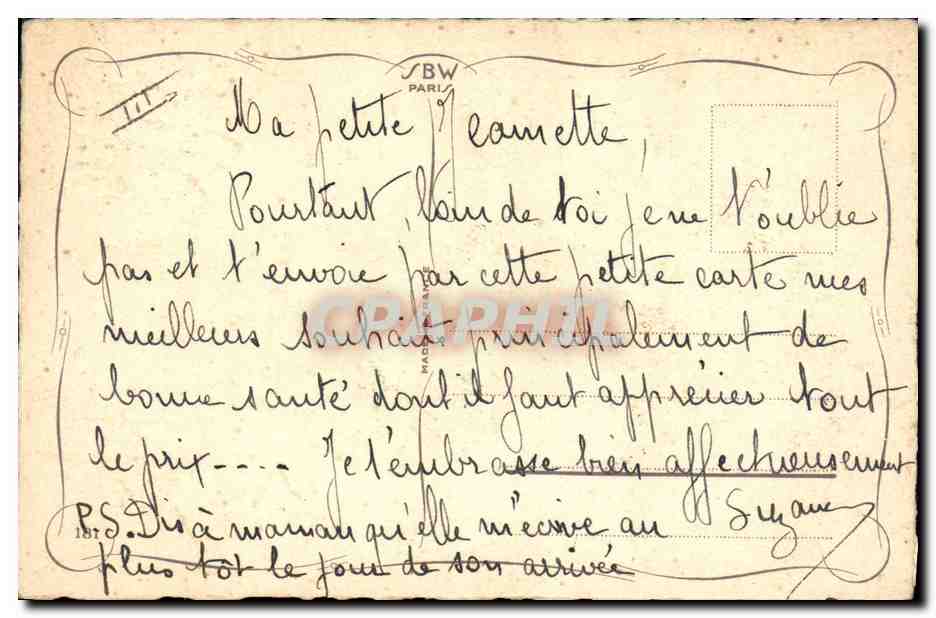 SBW
PARIS
III
Ma petite Jeannette,
Pourtant, loin de toi je ne t'oublie
pas et t'envoie par cette petite carte mes
meilleurs souhaits principalement de
bonne santé dont il faut apprécier tout
le prix---- Je t'embrasse bien affectueusement
Suzanne
P.S. Dis à maman qu'elle m'écrive au
plus tôt le jour de son arrivée
MADE IN FRANCE
CPAPHIL